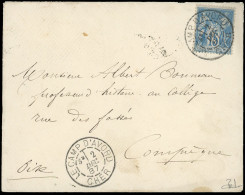 15
Monsieur Albert Bonneau
professeur d'histoire au Collège
rue des fossés
Compiègne
Oise
LE CAMP D'AVORD
2
87
CHER